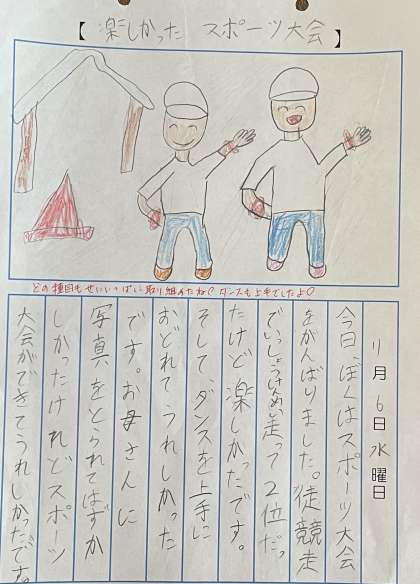 【 楽しかった スポーツ大会 】
どの種目もせいいっぱい取り組めたね♡ダンスも上手でしたよ♡
11月6日水曜日
今日、ぼくはスポーツ大会
をがんばりました。徒競走
でいっしょうけんめい走って2位だっ
たけど楽しかったです。
そして、ダンスを上手に
おどれてうれしかった
です。お母さんに
写真をとられてはずか
しかったけれどスポーツ
大会ができてうれしかったです。